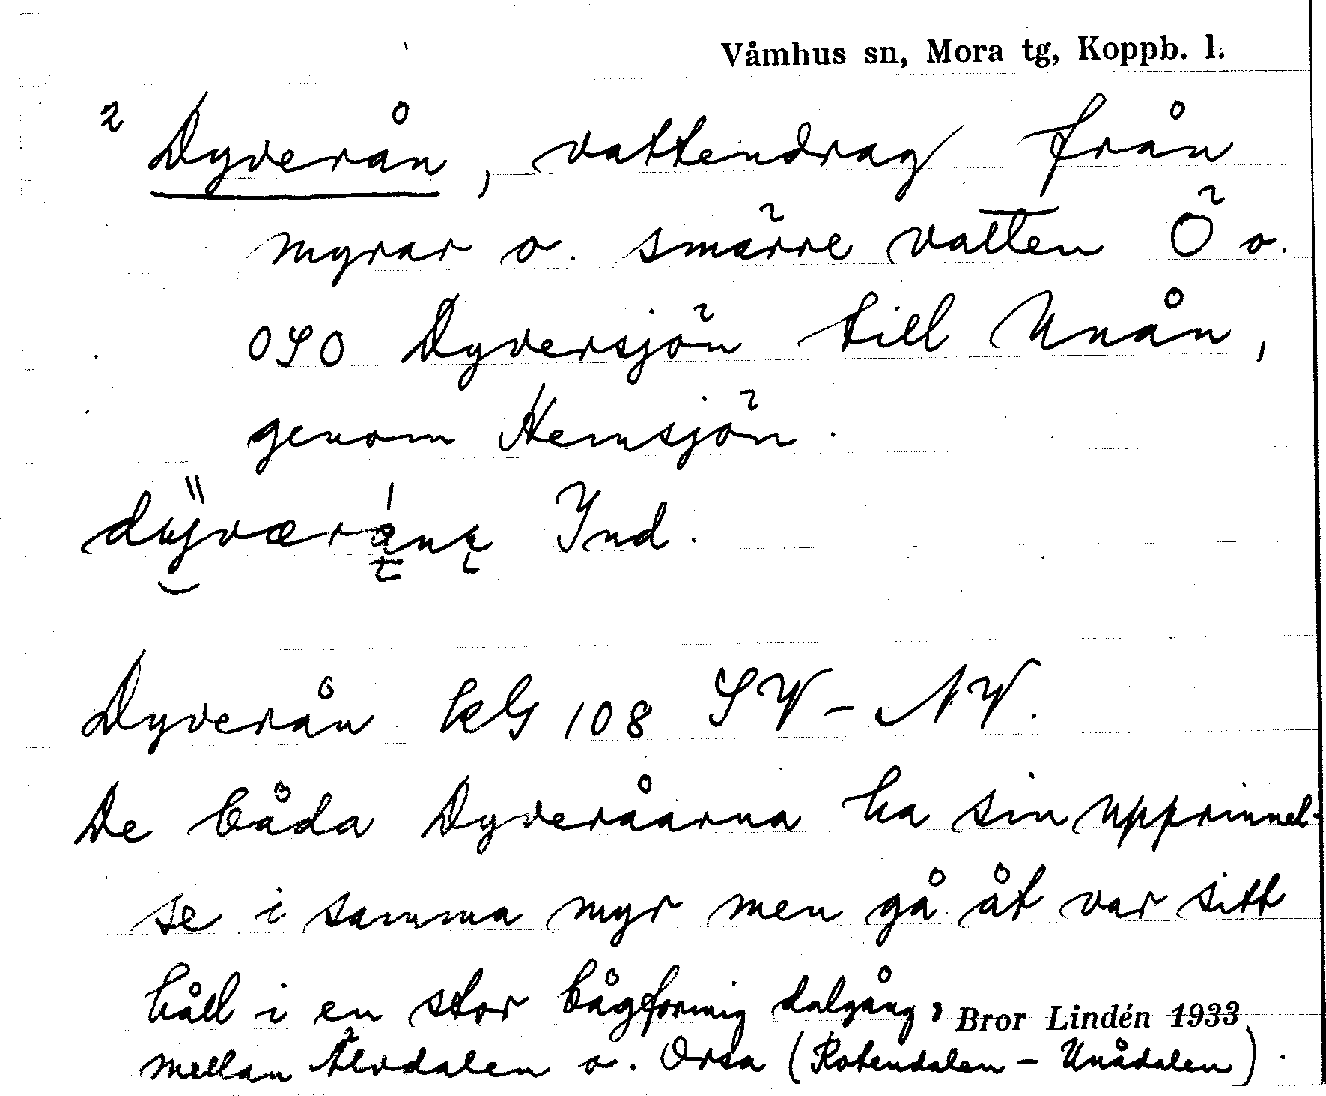 Våmhus sn, Mora tg, Koppb. l.
2 Dyverån, vattendrag från
myrar o. smärre vatten Ö o.
OSO Dyversjön till Unån,
genom Hemsjön.
Ind.
Dyverån kG 108 SV - NV.
De båda Dyveråarna ha sin upprinnel-
se i samma myr men gå åt var sitt
håll i en stor bågformig dalgång,
Bror Lindén 1933
mellan Älvdalen o. Orsa (Rotendalen - Unådalen).